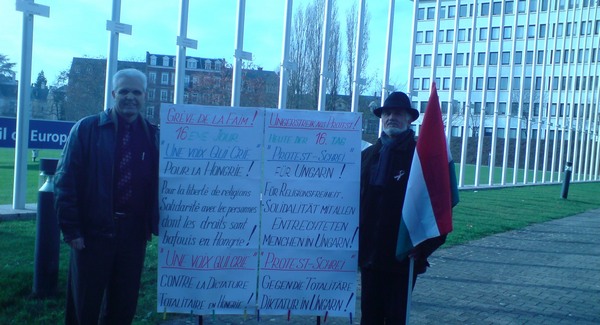 il of Europe
GRÈVE DE LA FAIM !
16EME JOUR
"UNE VOIX QUI CRIE
POUR LA HONGRIE !
Pour la liberté de religions
Solidarité avec les personnes
dont les droits sont
bafoués en Hongrie !
"UNE VOIX QUI CRIE
CONTRE LA DICTATURE
TOTALITAIRE EN HONGRIE !
HEUTE DER 16. TAG
"PROTEST-SCHREI
FÜR UNGARN !
FÜR RELIGIONSFREIHEIT.
SOLIDALITÄT MIT ALLEN
ENTRECHTETEN
MENCHEN IN UNGARN !
"PROTEST-SCHREI
GEGEN DIE TOTALITÄRE
DIKTATUR IN UNGARN !